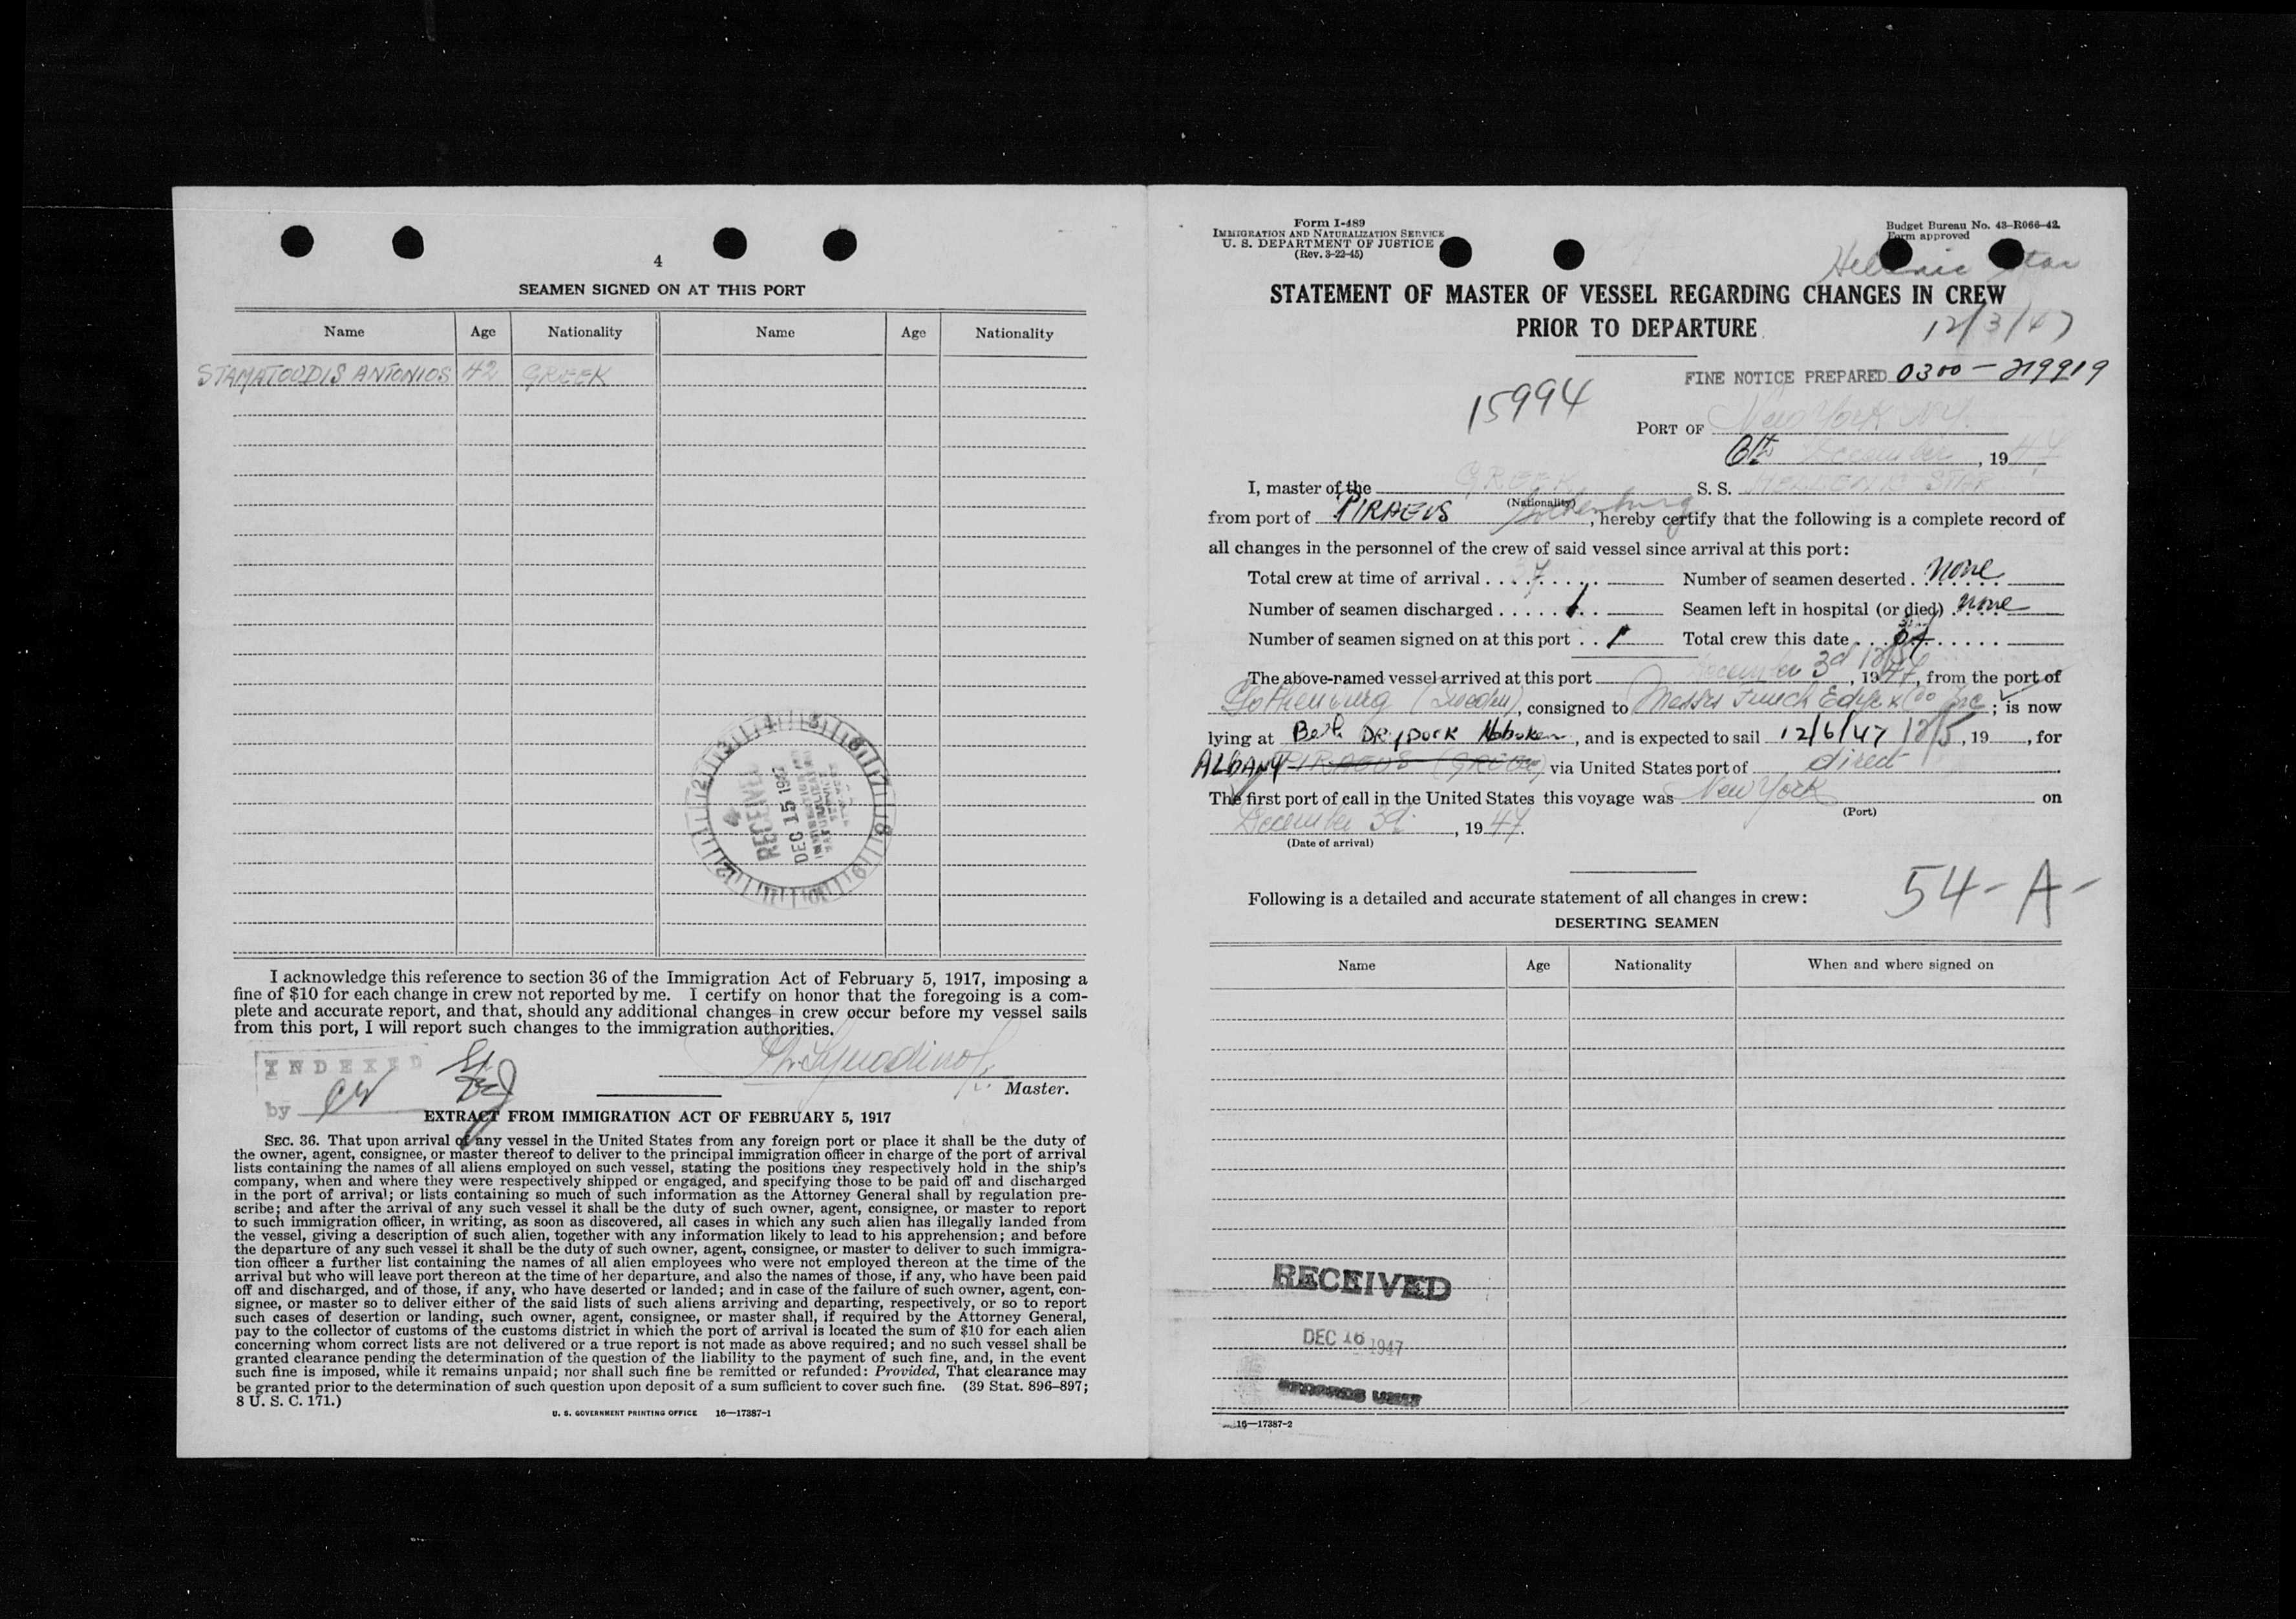 4
SEAMEN SIGNED ON AT THIS PORT
Name Age Nationality Name Age Nationality
STAMATOUDIS ANTONIOS 42 GREEK
4
RECEIVED
DEC 15 1947
I acknowledge this reference to section 36 of the Immigration Act of February 5, 1917, imposing a
fine of $10 for each change in crew not reported by me. I certify on honor that the foregoing is a com-
plete and accurate report, and that, should any additional changes in crew occur before my vessel sails
from this port, I will report such changes to the immigration authorities.
INDEXED
by
Master.
EXTRACT FROM IMMIGRATION ACT OF FEBRUARY 5, 1917
SEC. 36. That upon arrival of any vessel in the United States from any foreign port or place it shall be the duty of
the owner, agent, consignee, or master thereof to deliver to the principal immigration officer in charge of the port of arrival
lists containing the names of all aliens employed on such vessel, stating the positions they respectively hold in the ship's
company, when and where they were respectively shipped or engaged, and specifying those to be paid off and discharged
in the port of arrival; or lists containing so much of such information as the Attorney General shall by regulation pre-
scribe; and after the arrival of any such vessel it shall be the duty of such owner, agent, consignee, or master to report
to such immigration officer, in writing, as soon as discovered, all cases in which any such alien has illegally landed from
the vessel, giving a description of such alien, together with any information likely to lead to his apprehension; and before
the departure of any such vessel it shall be the duty of such owner, agent, consignee, or master to deliver to such immigra-
tion officer a further list containing the names of all alien employees who were not employed thereon at the time of the
arrival but who will leave port thereon at the time of her departure, and also the names of those, if any, who have been paid
off and discharged, and of those, if any, who have deserted or landed; and in case of the failure of such owner, agent, con-
signee, or master so to deliver either of the said lists of such aliens arriving and departing, respectively, or so to report
such cases of desertion or landing, such owner, agent, consignee, or master shall, if required by the Attorney General,
pay to the collector of customs of the customs district in which the port of arrival is located the sum of $10 for each alien
concerning whom correct lists are not delivered or a true report is not made as above required; and no such vessel shall be
granted clearance pending the determination of the question of the liability to the payment of such fine, and, in the event
such fine is imposed, while it remains unpaid; nor shall such fine be remitted or refunded: Provided, That clearance may
be granted prior to the determination of such question upon deposit of a sum sufficient to cover such fine. (39 Stat. 896–897;
8 U. S. C. 171.)
U. S. GOVERNMENT PRINTING OFFICE 16—17387-1
Form I-489
IMMIGRATION AND NATURALIZATION SERVICE
U. S. DEPARTMENT OF JUSTICE
(Rev. 3-22-45)
Budget Bureau No. 43-R066-42.
Form approved
Hellenic Star
STATEMENT OF MASTER OF VESSEL REGARDING CHANGES IN CREW
PRIOR TO DEPARTURE
12/3/47
FINE NOTICE PREPARED 0300-219919
15994
PORT OF New York N.Y.
6th December, 1947
I, master of the GREEK S. S. HELLENIC STAR
(Nationality)
from port of PIRAEUS Gothenburg, hereby certify that the following is a complete record of
all changes in the personnel of the crew of said vessel since arrival at this port:
Total crew at time of arrival 37 Number of seamen deserted none
Number of seamen discharged 1 Seamen left in hospital (or died) none
Number of seamen signed on at this port 1 Total crew this date 37
The above-named vessel arrived at this port December 3d, 1947, from the port of
Gothenburg (Sweden), consigned to Messrs Funch Edye & Co Inc; is now
lying at Beth DRYDOCK Hoboken, and is expected to sail 12/6/47 12/5, 19 , for
ALBANY PIRAEUS (GREECE) via United States port of direct
The first port of call in the United States this voyage was New York on
(Port)
December 3d, 1947.
(Date of arrival)
54-A-
Following is a detailed and accurate statement of all changes in crew:
DESERTING SEAMEN
Name Age Nationality When and where signed on
RECEIVED
DEC 16 1947
RECORDS UNIT
16—17387-2